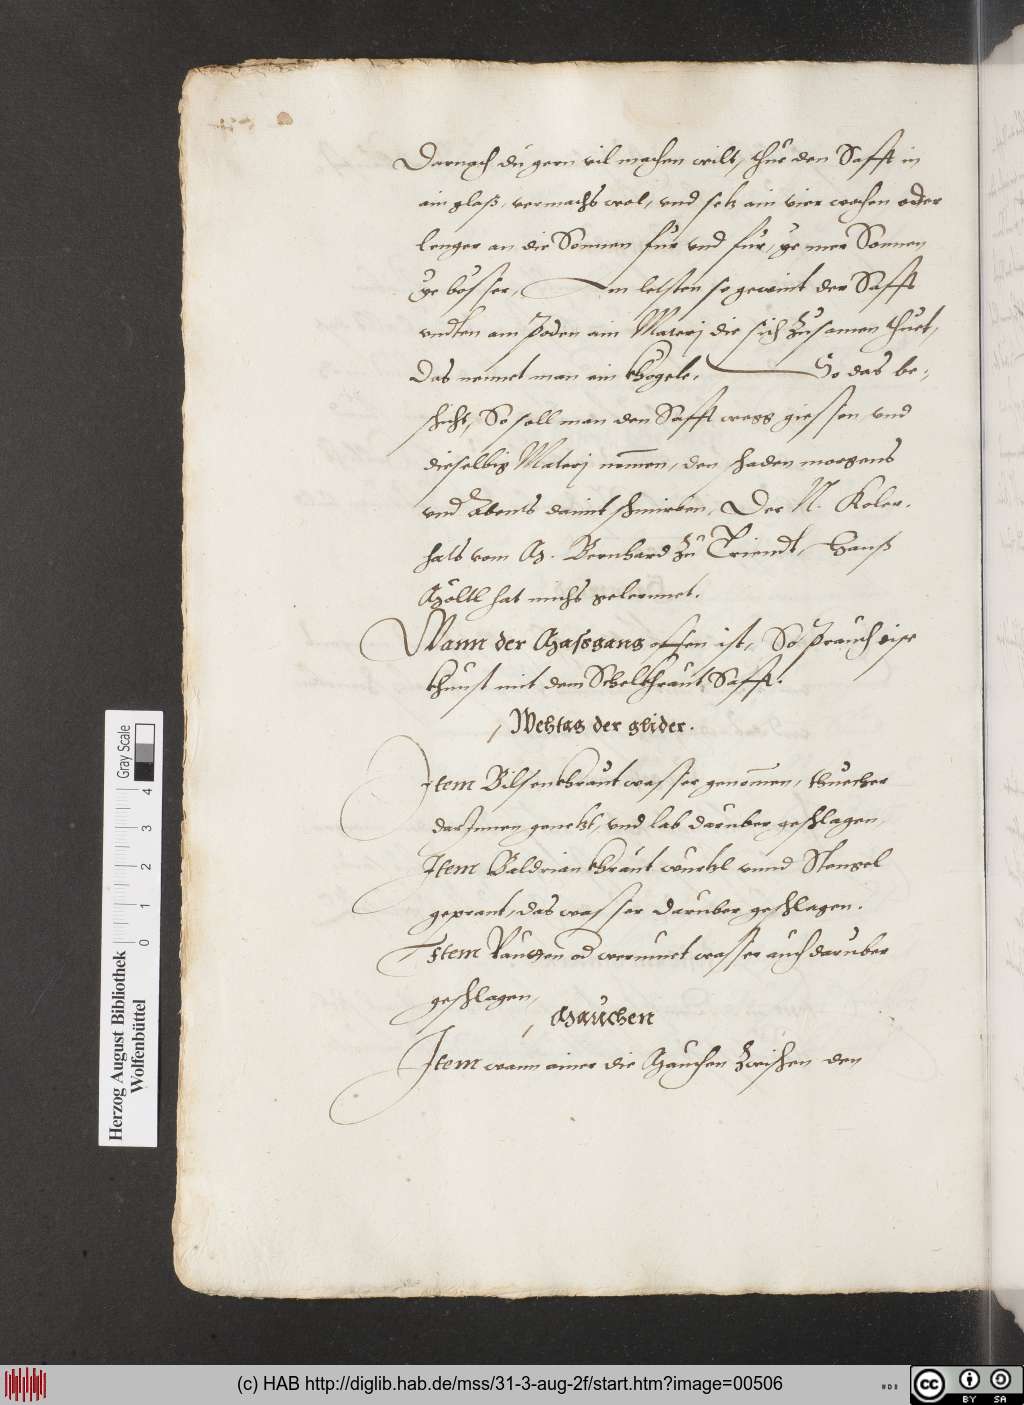 Darnach du gern vil machen wilt, thue den Safft in
ain glaß, vermachs wol, vnd setz ain vier wochen oder
lenger an die Sonnen fur vnd fur, ye mer Sonnen
ye bösser, Am letsten so gewint der Safft
vndten am Poden ain Materj die sich zusamen thuet,
das nennet man ain khogele. So das be-
schicht, So soll man den Safft wegg giessen vnd
dieselbig Materj nemen, den schaden morgens
vnd Abents damit schmirben, Der N. Koler.
hats vom H. Bernhard zu Triendt, Hanß
Höltl hat michs gelernnet.
Wann der Hassgang offen ist, So prauch dise
khunst mit dem Schelkhraut Safft.
Wehtag der glider.
Item Bilsenkhraut wasser genomen, thuecher
darInnen genetzt, vnd lab daruber geschlagen,
Item Baldrian khraut wurtzl vnnd Stengel
geprant, das wasser daruber geschlagen.
Item Raugen od wermuet wasser auch daruber
geschlagen,
Hauchen
Item wann ainer die Hauchen zwischen den
Herzog August Bibliothek
Wolfenbüttel
Gray Scale
0 1 2 3 4
(c) HAB http://diglib.hab.de/mss/31-3-aug-2f/start.htm?image=00506
cc BY SA